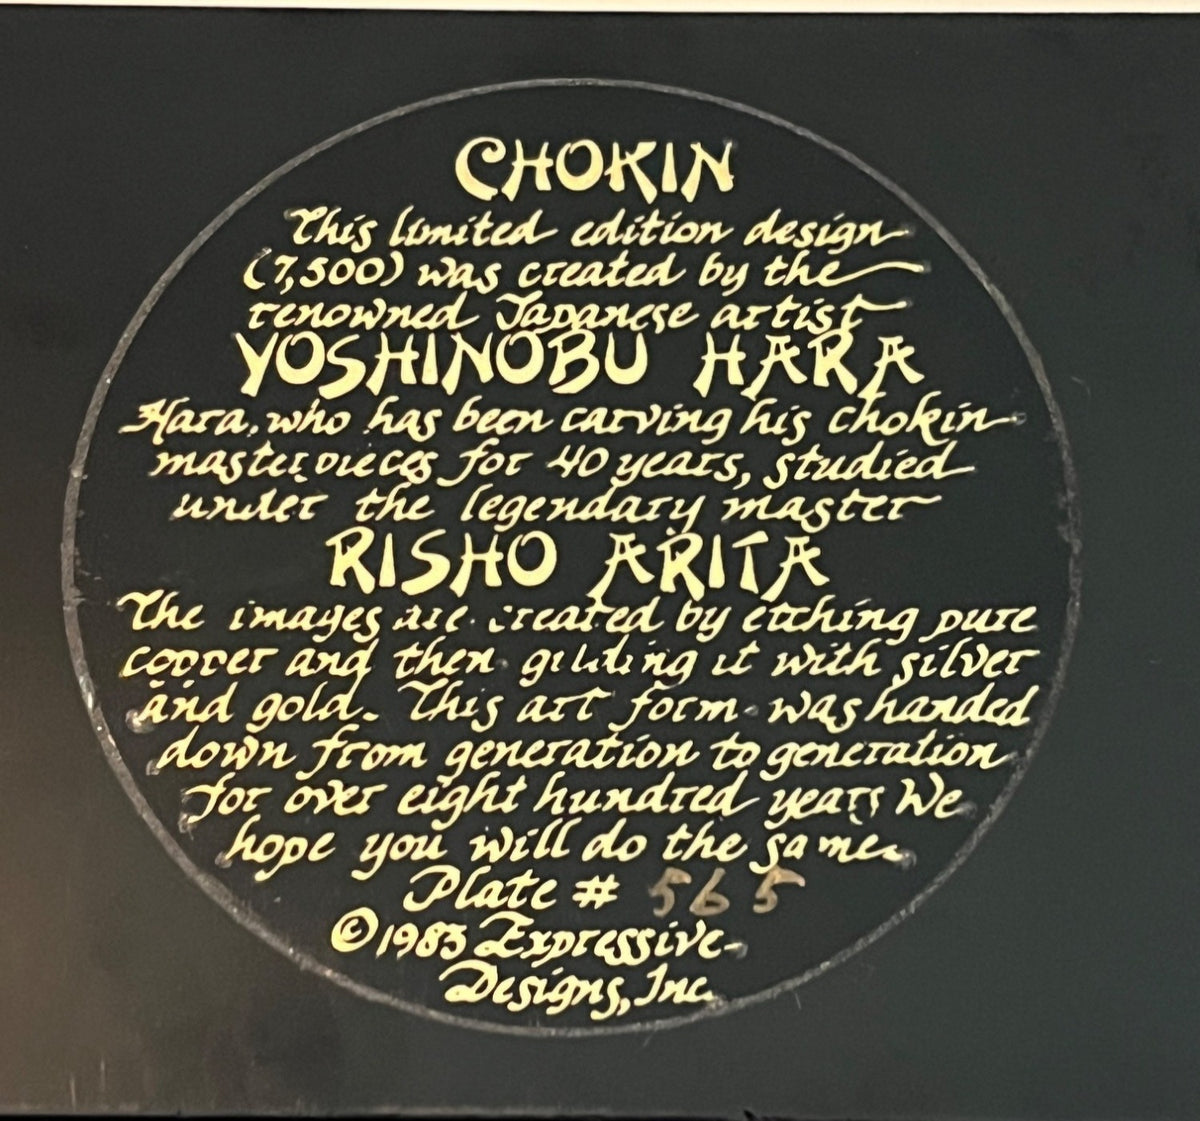 CHOKIN
This limited edition design
(7,500) was created by the
renowned Japanese artist
YOSHINOBU HARA
Hara, who has been carving his chokin
masterpieces for 40 years, studied
under the legendary master
RISHO ARITA
The images are created by etching pure
copper and then gilding it with silver
and gold. This art form was handed
down from generation to generation
for over eight hundred years We
hope you will do the same.
Plate # 565
©1983 Expressive
Designs, Inc.